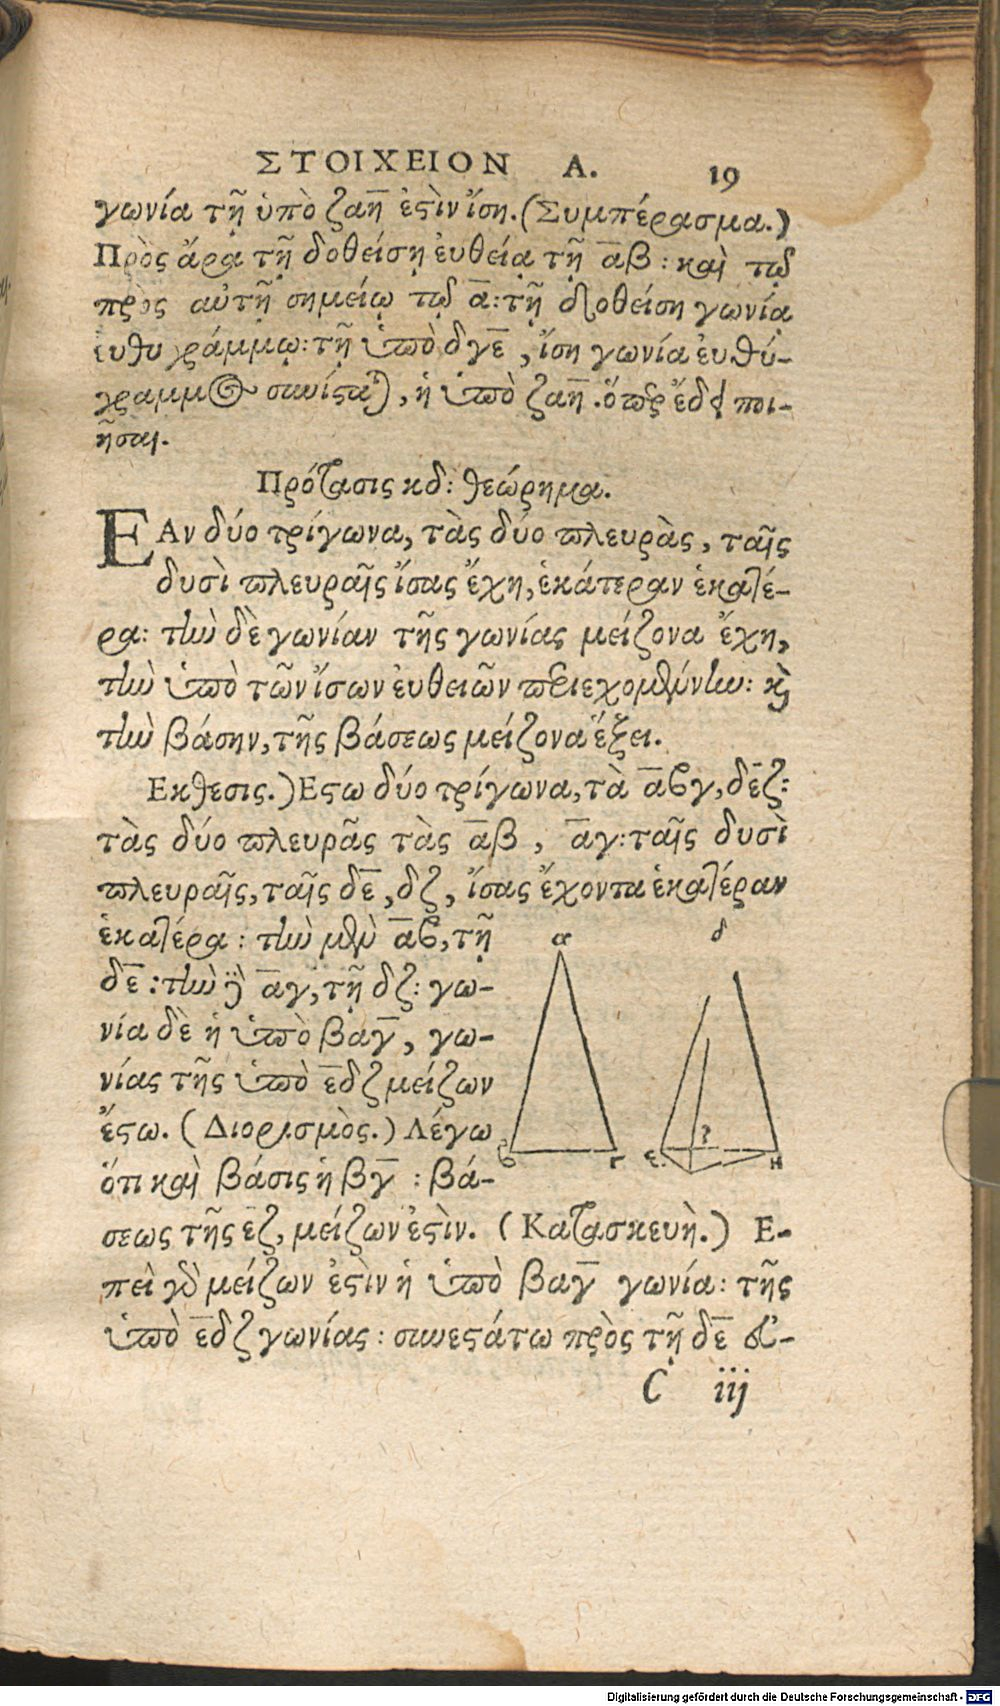 ΣΤΟΙΧΕΙΟΝ Α. 19
γωνία τῇ ὑπὸ ζαη̅ ἐςὶν ἴση. (Συμπέρασμα.)
Πρὸς ἄρα τῇ δοθείσῃ ἐυθείᾳ τῇ α̅β : καὶ τῷ
πρὸς αὐτῇ σημείῳ τῷ α̅: τῇ δοθείσῃ γωνίᾳ
ἐυθυγράμμῳ: τῇ ὑπὸ δγε̅, ἴση γωνία ἐυθύ-
γραμμος συνίςαται, ἡ ὑπὸ ζαη̅. ὅπερ ἔδει ποι-
ῆσαι.
Πρότασις κδ: θεώρημα.
ΕΑν δύο τρίγωνα, τὰς δύο πλευρὰς, ταῖς
δυσὶ πλευραῖς ἴσας ἔχη, ἑκάτεραν ἑκατέ-
ρα: τὴν δὲ γωνίαν τῆς γωνίας μείζονα ἔχη,
τὴν ὑπὸ τῶν ἴσων ἐυθειῶν περιεχομένην: καὶ
τὴν βάσην, τῆς βάσεως μείζονα ἕξει.
Εκθεσις.) Εςω δύο τρίγωνα, τὰ α̅βγ, δε̅ζ:
τὰς δύο πλευρᾶς τὰς α̅β, α̅γ: ταῖς δυσὶ
πλευραῖς, ταῖς δε̅, δζ, ἴσας ἔχοντα ἑκατέραν
ἑκατέρα: τὴν μὲν α̅β, τῇ
δε̅: τὴν δὲ α̅γ, τῇ δζ: γω-
νία δὲ ἡ ὑπὸ βαγ̅, γω-
νίας τῆς ὑπὸ ε̅δζ μείζων
ἔςω. (Διορισμὸς.) Λέγω
ὅτι καὶ βάσις ἡ βγ̅ : βά-
σεως τῆς εζ, μείζων ἐςὶν. (Κατασκευὴ.) Ε-
πεὶ γὰρ μείζων ἐςὶν ἡ ὑπὸ βαγ̅ γωνία: τῆς
ὑπὸ ε̅δζ γωνίας: συνεςάτω πρὸς τῇ δε̅ ἐυ-
C iij
α δ
β Γ ε. ζ Η
Digitalisierung gefördert durch die Deutsche Forschungsgemeinschaft - DFG